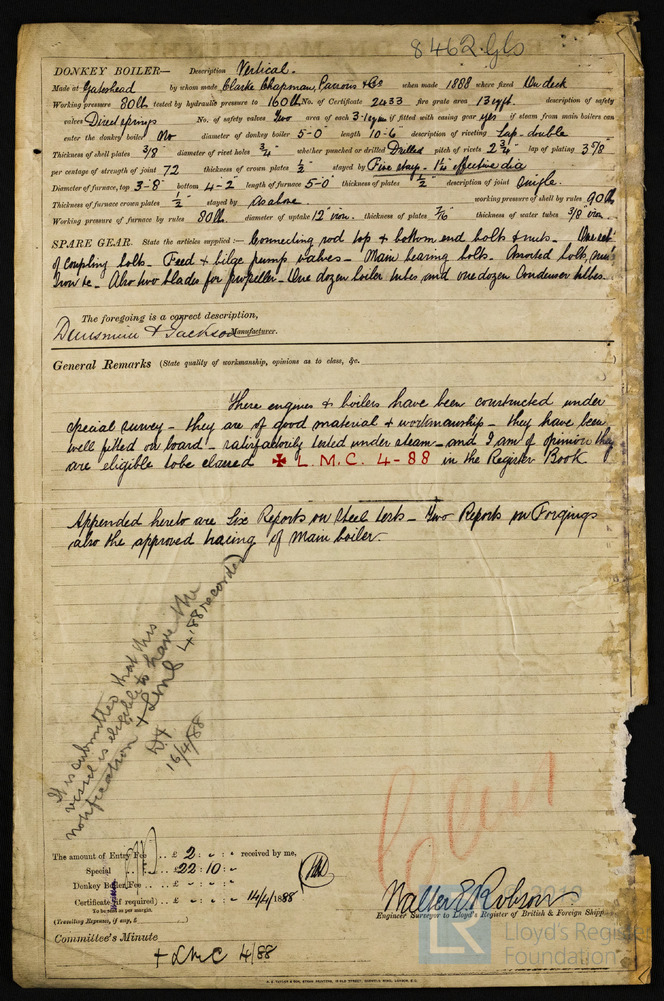 8462 Gls
DONKEY BOILER— Description Vertical.
Made at Gateshead by whom made Clarke Chapman, Parsons & Co when made 1888 where fixed On deck
Working pressure 80 lb tested by hydraulic pressure to 160 lb No. of Certificate 2033 fire grate area 13 sq ft. description of safety
valves Direct springs No. of safety valves Two area of each 3·1 sq in if fitted with easing gear yes if steam from main boilers can
enter the donkey boiler No diameter of donkey boiler 5-0" length 10-6" description of riveting Lap-double
Thickness of shell plates 3/8" diameter of rivet holes 3/4" whether punched or drilled Drilled pitch of rivets 2 3/4" lap of plating 3 7/8"
per centage of strength of joint 72 thickness of crown plates 1/2" stayed by Five stays - 1 1/4 effective dia
Diameter of furnace, top 3-8" bottom 4-2" length of furnace 5-0" thickness of plates 1/2" description of joint Single.
Thickness of furnace crown plates 1/2" stayed by as above. working pressure of shell by rules 90 lb
Working pressure of furnace by rules 80 lb. diameter of uptake 12" iron. thickness of plates 7/16" thickness of water tubes 3/8 iron.
SPARE GEAR. State the articles supplied:— Connecting rod top & bottom end bolts & nuts - One set
of coupling bolts. Feed & bilge pump valves - Main bearing bolts. Assorted bolts, nuts
Iron &c - Also two blades for propeller - One dozen boiler tubes and one dozen Condenser tubes.
The foregoing is a correct description,
& Jackson Manufacturer.
General Remarks (State quality of workmanship, opinions as to class, &c.
These engines & boilers have been constructed under
special survey - they are of good material & workmanship - they have been
well fitted on board - satisfactorily tested under steam - and I am of opinion they
are eligible to be classed ✠ L.M.C. 4-88 in the Register Book
Appended hereto are Six Reports on Steel tests - Two Reports on Forgings
also the approved tracing of Main boiler.
It is submitted that this
vessel is eligible to have the
notification + LMC 4.88 recorded
16/4/88
The amount of Entry Fee .. £ 2 : - : - received by me,
Special .. £22 : 10 : -
Donkey Boiler Fee .. £ - : - : -
Certificate (if required) .. £ - : - : - 14/4/1888
To be sent as per margin.
(Travelling Expenses, if any, £ )
Walter E Robson
Engineer Surveyor to Lloyd's Register of British & Foreign Shipp
Committee's Minute
+ LMC 4/88
LR
Lloyd's Register
Foundation